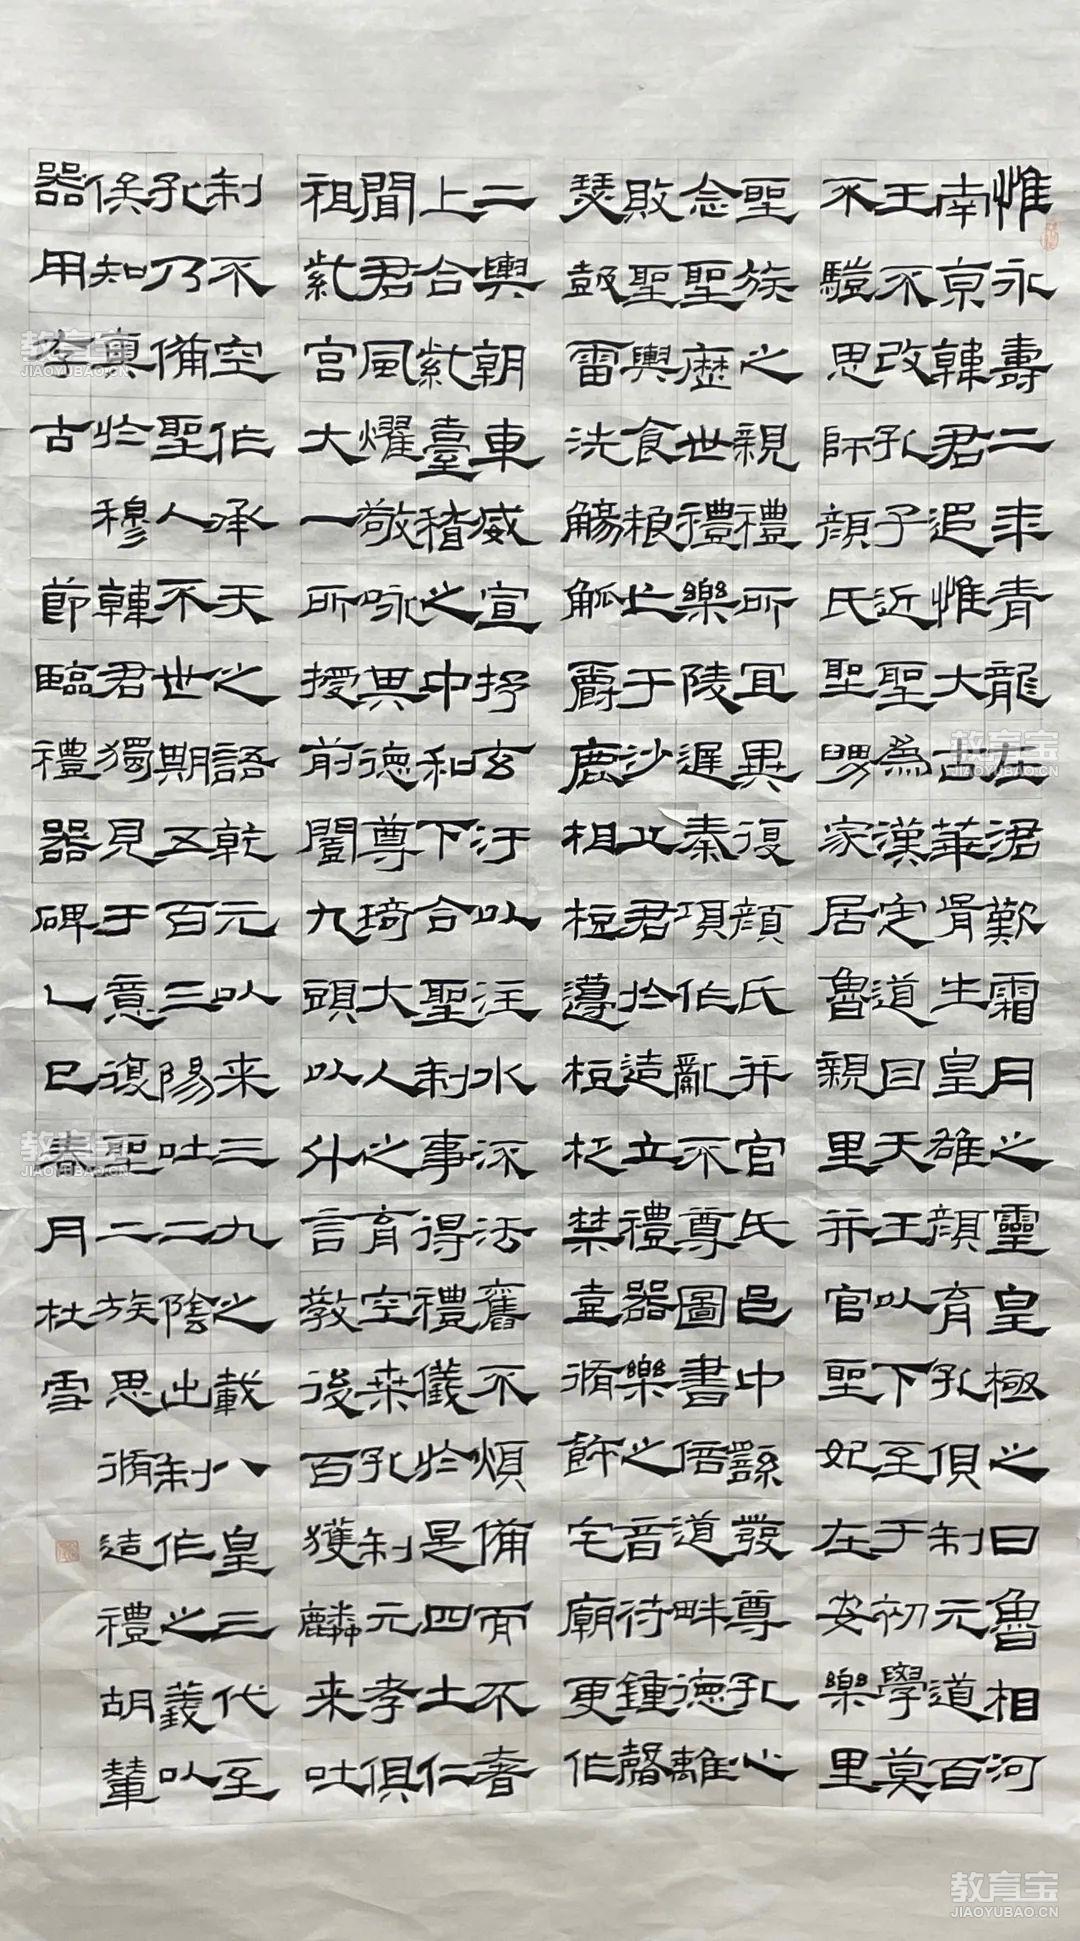 惟永壽二年青龍在涒歎霜月之靈皇極之日魯相河
南京韓君追惟大古華胥生皇雄顏育孔俱制元道百
王不改孔子近聖為漢定道自天王以下至于初學莫
不驥思師顏氏聖舅家居魯親里并官聖妃在安樂里
聖族之親禮所宜異復顏氏并官氏邑中繇發尊孔心
念聖歷世禮樂陵遲秦項作亂不尊圖書倍道畔德離
敗聖輿食糧亡于沙丘君於造立禮器樂之音符鍾磬
瑟鼓雷洗觴觚爵鹿相梪籩梪柉禁壺循飾宅廟更作
二輿朝車威宣抒玄汙以注水流法舊不煩備而不奢
上合紫臺稽之中和下合聖制事得禮儀於是四土仁
聞君風燿敬咏其德尊琦大人之育空桑孔制元孝俱
祖紫宮大一所授前闓九頭以什言教後百獲麟来吐
制不空作承天之語乾元以来三九之載八皇三代至
孔乃備聖人不世期五百三陽吐二陰出制作之義以
俟知奧於穆韓君獨見于意復聖二族思循造禮胡輦
器用存古 節臨禮器碑乙巳春月杜雪
教育宝
JIAOYUBAO.CN
教育宝
JIAOYUBAO.CN
教育宝
JIAOYUBAO.CN
教育宝
JIAOYUBAO.CN
教育宝
JIAOYUBAO.CN